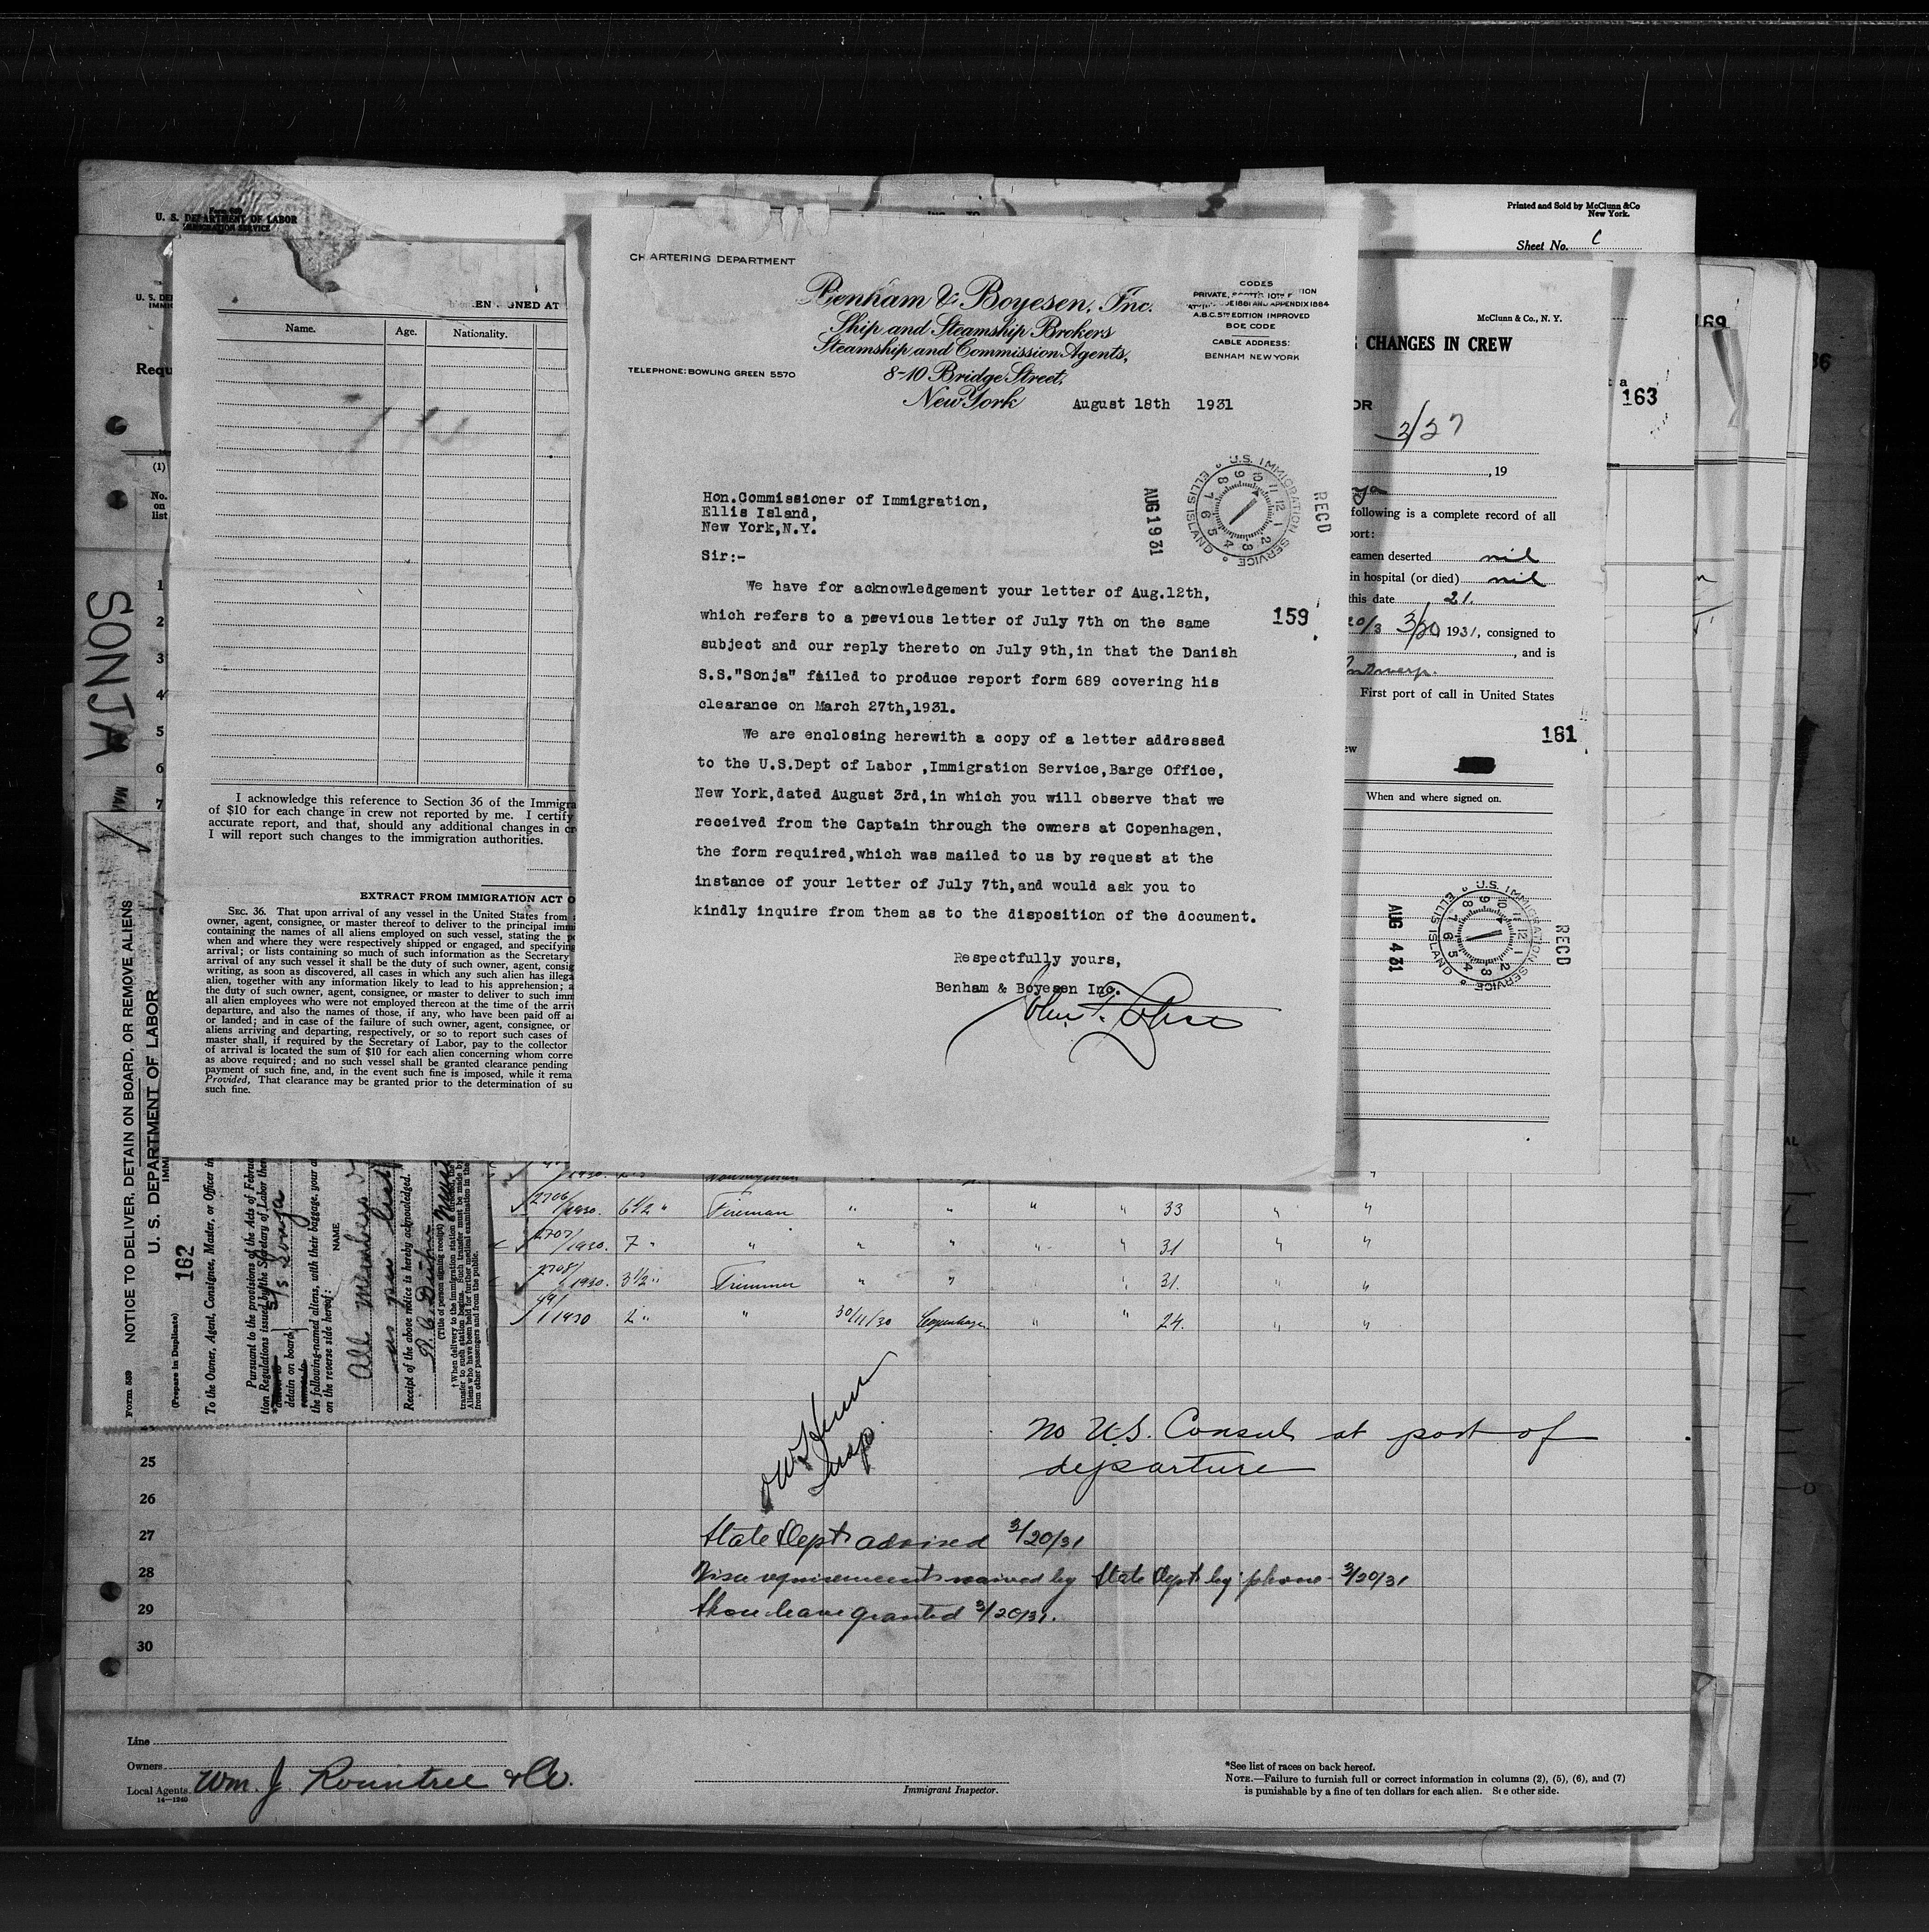 Form 689
U. S. DEPARTMENT OF LABOR
IMMIGRATION SERVICE
Printed and Sold by McClunn &Co
New York.
Sheet No. C
169
163
McClunn & Co., N. Y.
CHANGES IN CREW
2/27
, 19
following is a complete record of all
port:
seamen deserted nil
in hospital (or died) nil
this date 21.
20/3 3/20, 1931, consigned to
, and is
Antwerp.
First port of call in United States
161
When and where signed on.
AUG 4 31
U.S. IMMIGRATION SERVICE
ELLIS ISLAND
RECD
Requ
(1)
No.
on
list
SONJA
1
2
3
4
5
6
7
EN SIGNED AT
Name.
Age.
Nationality.
I acknowledge this reference to Section 36 of the Immigra
of $10 for each change in crew not reported by me. I certify
accurate report, and that, should any additional changes in cr
I will report such changes to the immigration authorities.
EXTRACT FROM IMMIGRATION ACT O
SEC. 36. That upon arrival of any vessel in the United States from
owner, agent, consignee, or master thereof to deliver to the principal immi
containing the names of all aliens employed on such vessel, stating the p
when and where they were respectively shipped or engaged, and specifying
arrival; or lists containing so much of such information as the Secretary
arrival of any such vessel it shall be the duty of such owner, agent, consig
writing, as soon as discovered, all cases in which any such alien has illega
alien, together with any information likely to lead to his apprehension; a
the duty of such owner, agent, consignee, or master to deliver to such imm
all alien employees who were not employed thereon at the time of the arriv
departure, and also the names of those, if any, who have been paid off a
or landed; and in case of the failure of such owner, agent, consignee, or
aliens arriving and departing, respectively, or so to report such cases of
master shall, if required by the Secretary of Labor, pay to the collector
of arrival is located the sum of $10 for each alien concerning whom corre
as above required; and no such vessel shall be granted clearance pending
payment of such fine, and, in the event such fine is imposed, while it rema
Provided, That clearance may be granted prior to the determination of su
such fine.
CHARTERING DEPARTMENT
Benham & Boyesen, Inc.
Ship and Steamship Brokers
Steamship and Commission Agents,
8-10 Bridge Street,
New York
TELEPHONE: BOWLING GREEN 5570
CODES
PRIVATE, SCOTTS 10TH EDITION
1881 AND APPENDIX 1884
A.B.C. 5TH EDITION IMPROVED
BOE CODE
CABLE ADDRESS:
BENHAM NEW YORK
August 18th 1931
AUG 19 31
U.S. IMMIGRATION SERVICE
ELLIS ISLAND
RECD
Hon.Commissioner of Immigration,
Ellis Island,
New York,N.Y.
Sir:-
We have for acknowledgement your letter of Aug.12th,
which refers to a previous letter of July 7th on the same
subject and our reply thereto on July 9th,in that the Danish
S.S."Sonja" failed to produce report form 689 covering his
clearance on March 27th,1931.
159
We are enclosing herewith a copy of a letter addressed
to the U.S.Dept of Labor ,Immigration Service,Barge Office,
New York,dated August 3rd,in which you will observe that we
received from the Captain through the owners at Copenhagen,
the form required,which was mailed to us by request at the
instance of your letter of July 7th,and would ask you to
kindly inquire from them as to the disposition of the document.
Respectfully yours,
Benham & Boyesen Inc.
Form 539
(Prepare in Duplicate)
NOTICE TO DELIVER, DETAIN ON BOARD, OR REMOVE ALIENS
U. S. DEPARTMENT OF LABOR
162
To the Owner, Agent, Consignee, Master, or Officer in
Pursuant to the provisions of the Acts of Februa
tion Regulations issued by the Secretary of Labor ther
S/S Sonja
detain on board
the following-named aliens, with their baggage, your a
on the reverse side hereof:
NAME
All members
as per list
Receipt of the above notice is hereby acknowledged.
(Title of person signing receipt)
† When delivery to the immigration station is directed, the
transfer to such station begins. Such transfer must be made by
Aliens who have been held for further medical examination in the
from other passengers and from the public.
2706/1930. 6½ " Fireman " " " " 33 " "
2707/1930. 7 " " " " " " 31 " "
2708/1930. 3½ " Trimmer " " " " 31. " "
49/1930 2 " " 30/11/30 Copenhagen " " 24. " "
Insp.
No U.S. Consul at port of
departure
25
26
27
28
29
30
State Dept advised 3/20/31
Visa requirements waived by State Dept by phone - 3/20/31
Shore leave granted 3/20/31.
Line
Owners
Local Agents Wm. J. Rountree & Co.
14—1240
Immigrant Inspector.
*See list of races on back hereof.
NOTE.—Failure to furnish full or correct information in columns (2), (5), (6), and (7)
is punishable by a fine of ten dollars for each alien. See other side.